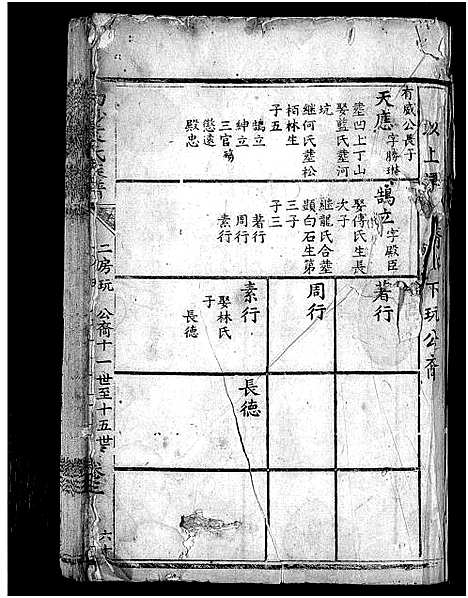 以上
下玩公裔
有威公長子
天應
字勝琳
葬凹上丁山
娶藍氏葬河
坑
繼何氏葬松
栢林生
子五
鵠立
紳立
三官殤
懲遠
殿忠
鵠立
字殿臣
娶傅氏生長
次子
繼龍氏合葬
顯白石生第
三子
子三
著行
周行
素行
著行
周行
素行
娶林氏
子
長德
長德
二房玩公裔十一世至十五世